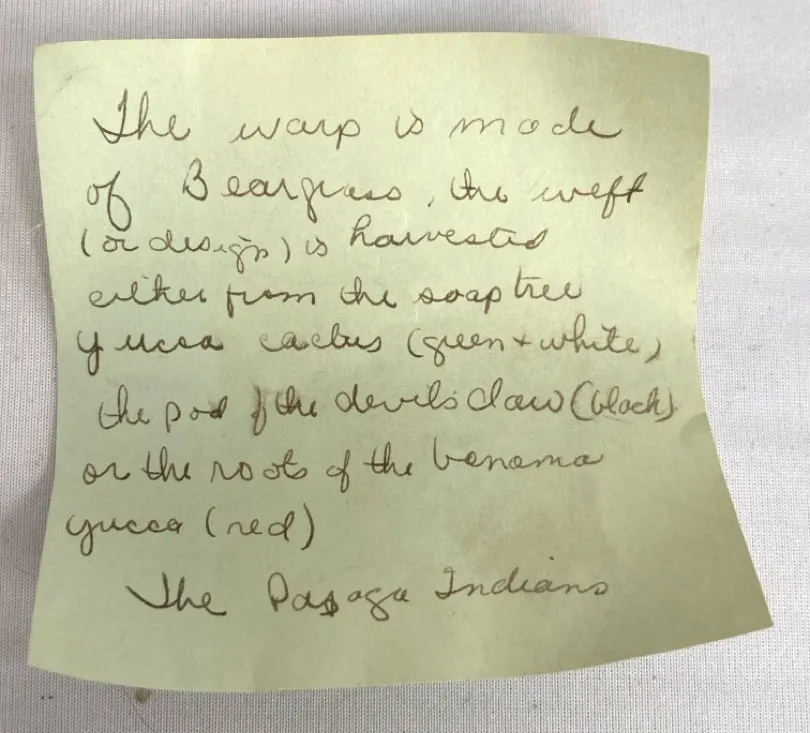 The warp is made
of Beargrass, the weft
(or design) is harvested
either from the soap tree
yucca cactus (green + white)
the pod of the devils claw (black)
or the roots of the banama
yucca (red)
The Papago Indians